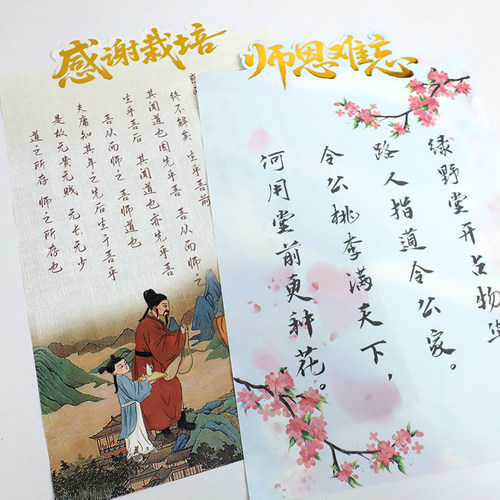 感谢栽培
师恩难忘
终不解矣 生乎吾前
其闻道也固先乎吾 吾从而师之
生乎吾后 其闻道也亦先乎吾
吾从而师之 吾师道也
夫庸知其年之先后生于吾乎
是故无贵无贱 无长无少
道之所存 师之所存也
绿野堂开占物华
路人指道令公家。
令公桃李满天下，
河用堂前更种花。